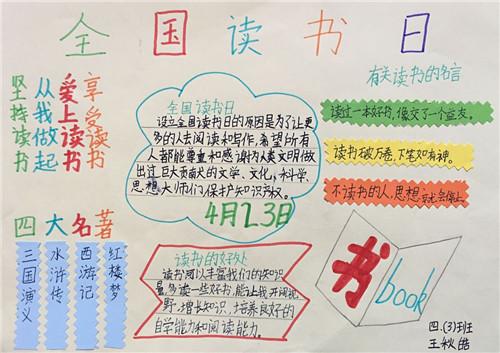 全国读书日
坚持读书
从我做起
爱上读书
享受读书
全国读书日
设立全国读书日的原因是为了让更
多的人去阅读和写作，希望所有
人都能尊重和感谢为人类文明做
出过巨大贡献的文学，文化，科学，
思想大师们保护知识产权。
4月23日
有关读书的名言
读过一本好书，像交了一个益友。
读书破万卷，下笔如有神。
不读书的人，思想就会停止
四大名著
三国演义
水浒传
西游记
红楼梦
读书的好处
读书可以丰富我们的知识
量，多读一些好书，能让我开阔视
野，增长知识，培养良好的
自学能力和阅读能力。
书
book
四.(3)班
王秋皓